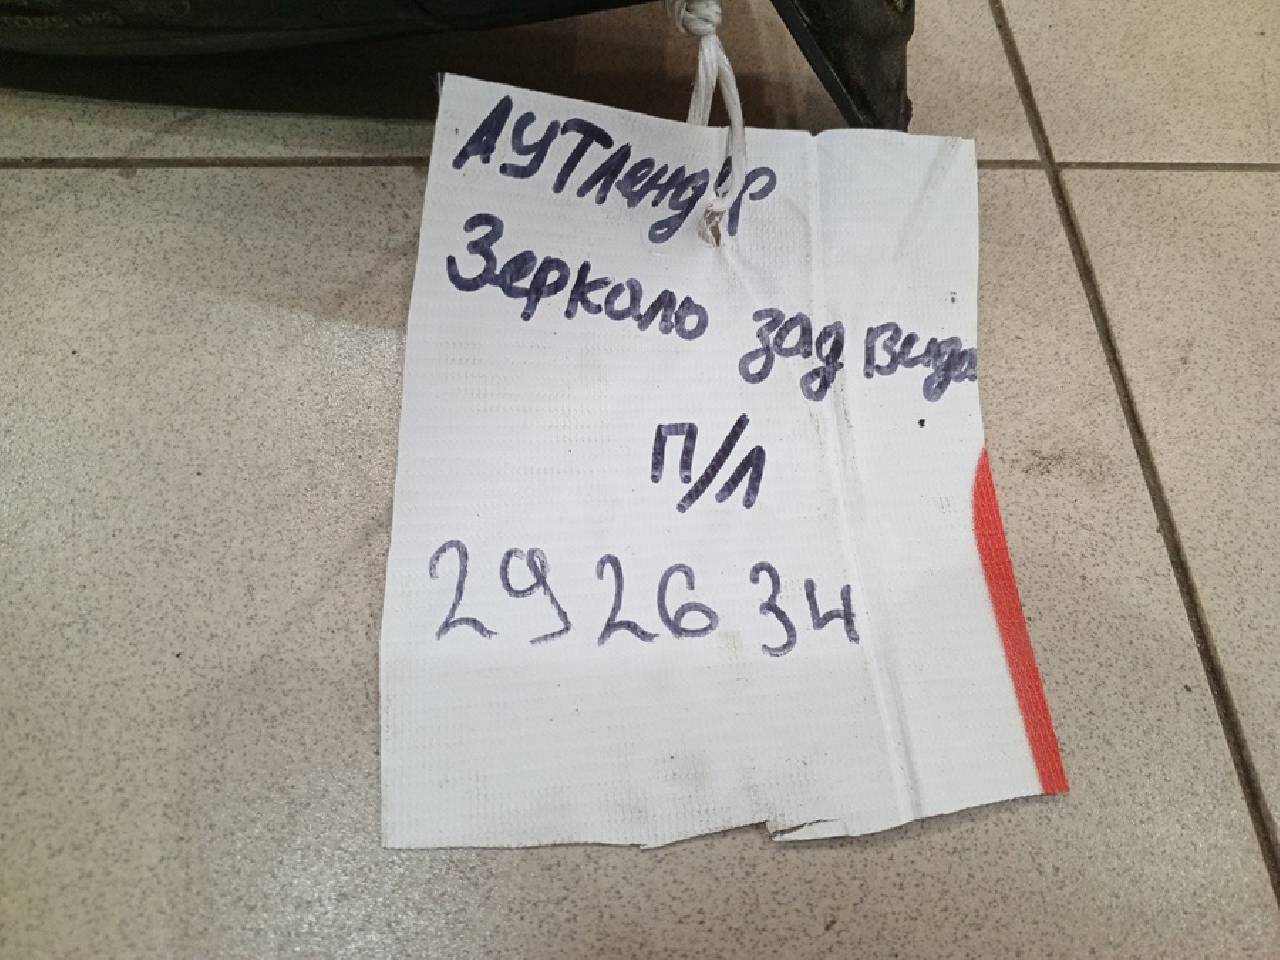 АУТлендер
Зеркало зад вида
П/Л
292634